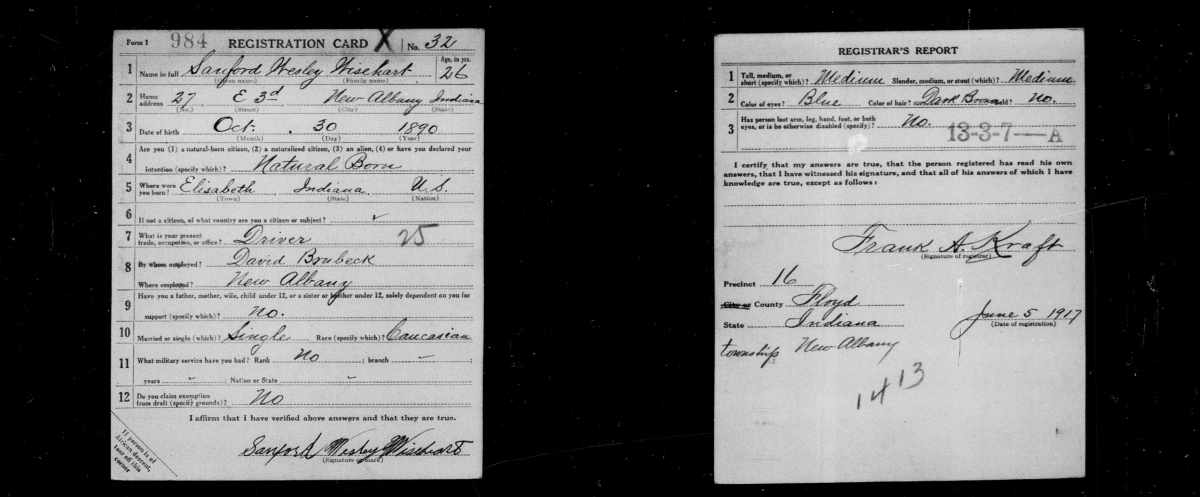 Form 1 984 REGISTRATION CARD X No. 32
1 Name in full Sanford Wesley Wisehart Age, in yrs. 26
(Given name) (Family name)
2 Home address 27 E 3d New Albany Indiana
(No.) (Street) (City) (State)
3 Date of birth Oct. 30 1890
(Month) (Day) (Year)
4 Are you (1) a natural-born citizen, (2) a naturalized citizen, (3) an alien, (4) or have you declared your
intention (specify which)? Natural Born
5 Where were you born? Elisabeth Indiana U.S.
(Town) (State) (Nation)
6 If not a citizen, of what country are you a citizen or subject?
7 What is your present trade, occupation, or office? Driver 25
8 By whom employed? David Brubeck
Where employed? New Albany
9 Have you a father, mother, wife, child under 12, or a sister or brother under 12, solely dependent on you for
support (specify which)? No.
10 Married or single (which)? Single Race (specify which)? Caucasian
11 What military service have you had? Rank No ; branch - ;
years - ; Nation or State -
12 Do you claim exemption from draft (specify grounds)? No
I affirm that I have verified above answers and that they are true.
Sanford Wesley Wisehart
(Signature or mark)
If person is of
African descent,
tear off this
corner
REGISTRAR'S REPORT
1 Tall, medium, or short (specify which)? Medium Slender, medium, or stout (which)? Medium
2 Color of eyes? Blue Color of hair? Dark Brown Bald? No.
3 Has person lost arm, leg, hand, foot, or both
eyes, or is he otherwise disabled (specify)? No.
13-3-7-A
I certify that my answers are true, that the person registered has read his own
answers, that I have witnessed his signature, and that all of his answers of which I have
knowledge are true, except as follows:
Frank A. Kraft
(Signature of registrar)
Precinct 16
City or County Floyd
State Indiana June 5 1917
(Date of registration)
township New Albany
14 13